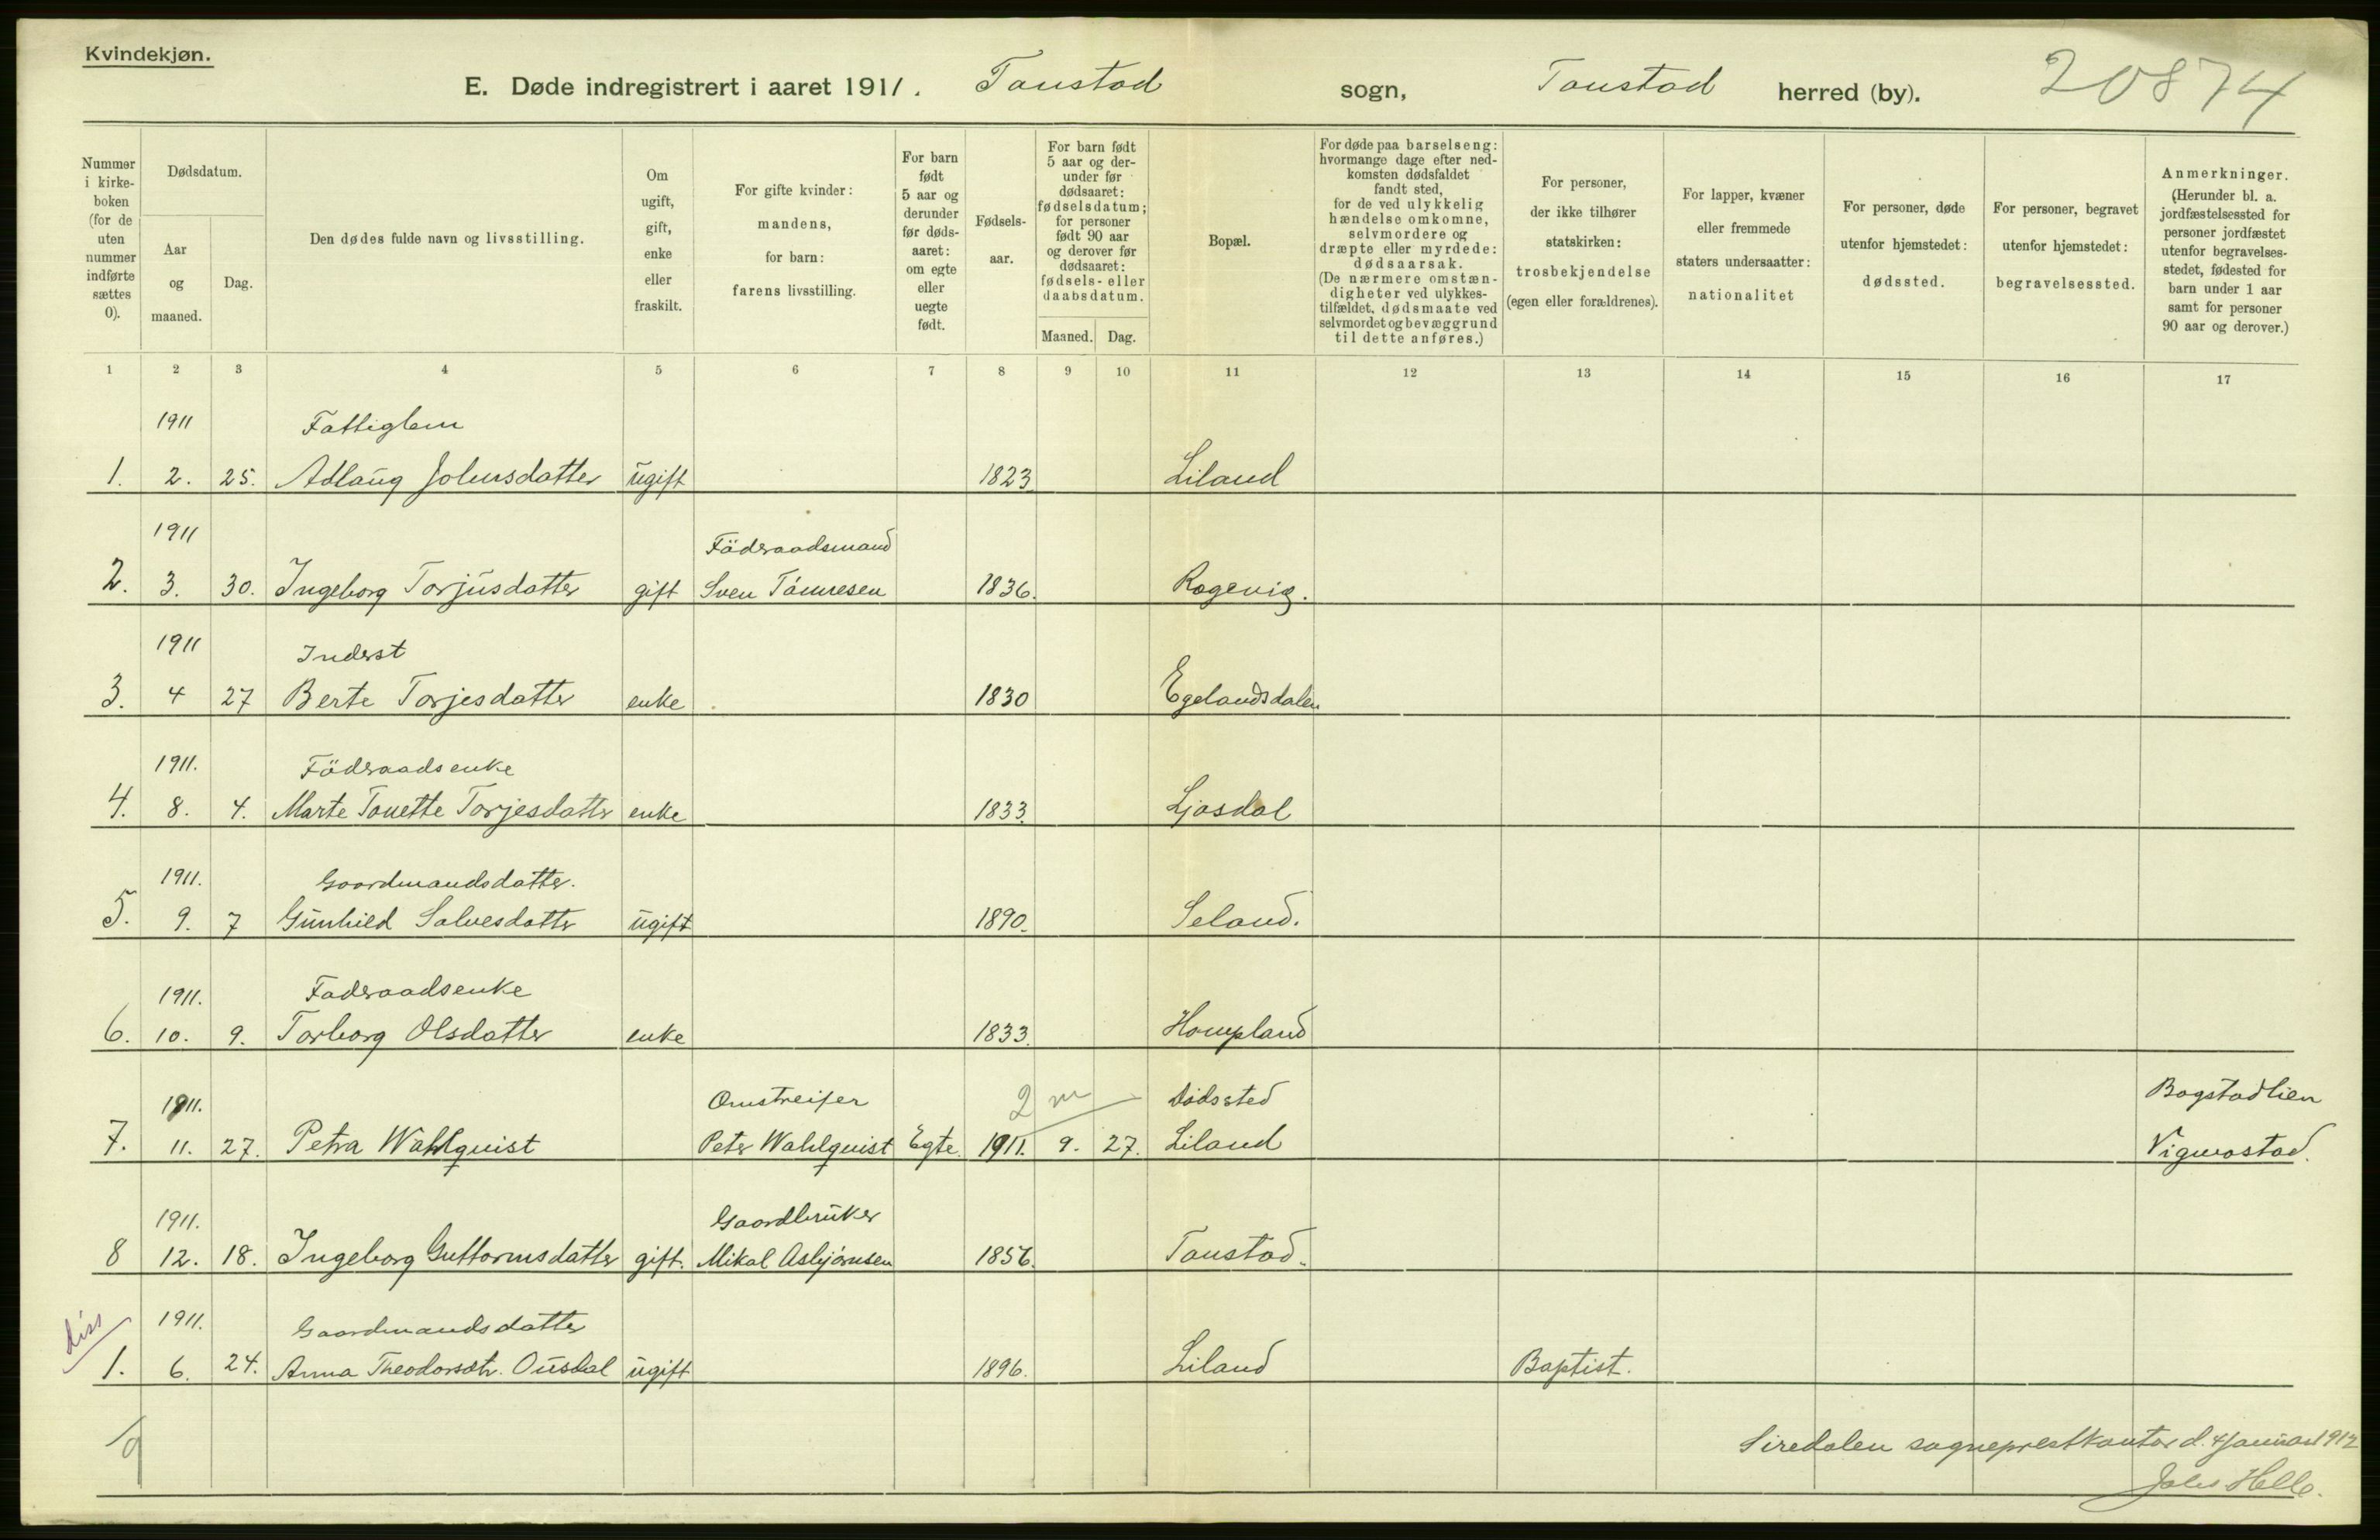 Kvindekjøn.
E. Døde indregistrert i aaret 1911. Tonstad sogn, Tonstad herred (by). 20874
Nummer i kirkeboken (for de uten nummer indførte sættes 0).
Dødsdatum.
Aar og maaned.
Dag.
Den dødes fulde navn og livsstilling.
Om ugift, gift, enke eller fraskilt.
For gifte kvinder: mandens, for barn: farens livsstilling.
For barn født 5 aar og derunder før dødsaaret: om egte eller uegte født.
Fødselsaar.
For barn født 5 aar og derunder før dødsaaret: fødselsdatum; for personer født 90 aar og derover før dødsaaret: fødsels- eller daabsdatum.
Maaned. Dag.
Bopæl.
For døde paa barselseng: hvormange dage efter nedkomsten dødsfaldet fandt sted, for de ved ulykkelig hændelse omkomne, selvmordere og dræpte eller myrdede: dødsaarsak. (De nærmere omstændigheter ved ulykkestilfældet, dødsmaate ved selvmordet og bevæggrund til dette anføres.)
For personer, der ikke tilhører statskirken: trosbekjendelse (egen eller forældrenes).
For lapper, kvæner eller fremmede staters undersaatter: nationalitet
For personer, døde utenfor hjemstedet: dødssted.
For personer, begravet utenfor hjemstedet: begravelsessted.
Anmerkninger. (Herunder bl. a. jordfæstelsessted for personer jordfæstet utenfor begravelsesstedet, fødested for barn under 1 aar samt for personer 90 aar og derover.)
1 2 3 4 5 6 7 8 9 10 11 12 13 14 15 16 17
1911 Fattiglem
1. 2. 25. Adlaug Johnsdatter ugift 1823 Liland
1911 Föderaadsmand
2. 3. 30. Ingeborg Torjusdatter gift Sven Tónnesen 1836. Rogevig.
1911 Inderst
3. 4 27 Berte Torjesdatter enke 1830 Egelandsdalen
1911. Föderaadsenke
4. 8. 4. Marte Tonette Torjesdatter enke 1833. Ljosdal
1911. Gaardmandsdatter.
5. 9. 7 Gunhild Salvesdatter ugift 1890. Seland.
1911. Foderaadsenke
6. 10. 9. Torborg Olsdatter enke 1833. Hompland
1911. Omstreifer 2 m Dödssted Bogstadlien
7. 11. 27. Petra Wahlquist Peter Wahlquist Egte. 1911. 9. 27. Liland Vigmostad.
1911. Gaardbruker
8 12. 18. Ingeborg Guttormsdatter gift. Mikal Asbjörnsen 1856. Tonstad.
diss 1911. Gaardmandsdatter
1. 6. 24. Anna Theodorsdtr. Ousdal ugift 1896. Liland Baptist.
9
Siredalen sogneprestkontor d. 4 januar 1912
Johs Helle.